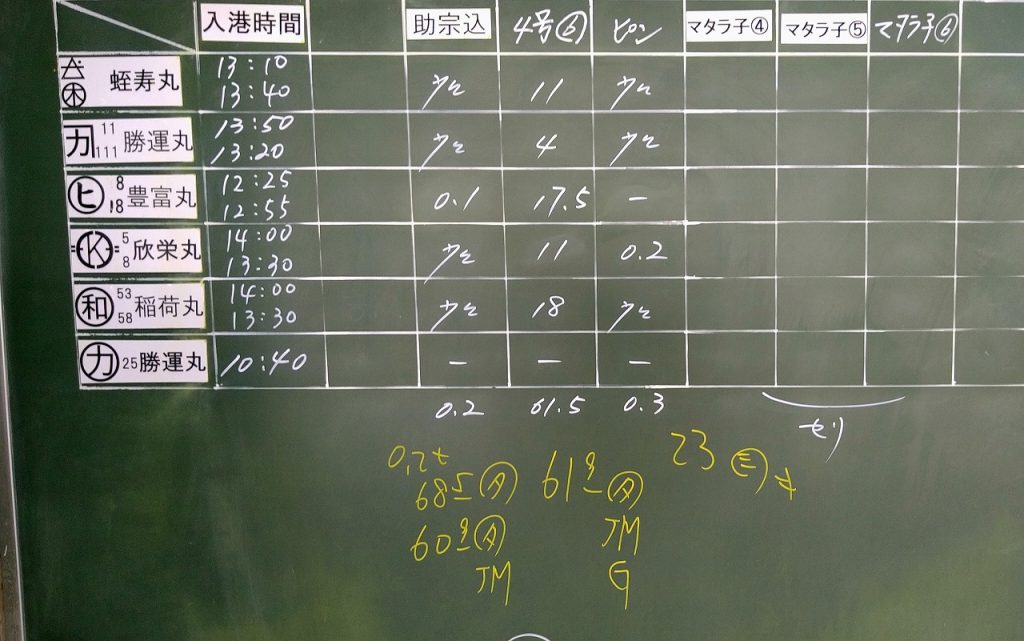 入港時間 助宗込 4号⑥ ピン マタラ子④ マタラ子⑤ マタラ子⑥
蛭寿丸 13:10 13:40 少々 11 少々
11 111 勝運丸 13:50 13:20 少々 4 少々
ヒ 8 18 豊富丸 12:25 12:55 0.1 17.5 -
K 5 8 欣栄丸 14:00 13:30 少々 11 0.2
和 53 58 稲荷丸 14:00 13:30 少々 18 少々
カ 25 勝運丸 10:40 - - -
0.2 61.5 0.3
セリ
0.2t
23
685
61
60
JM
JM
G